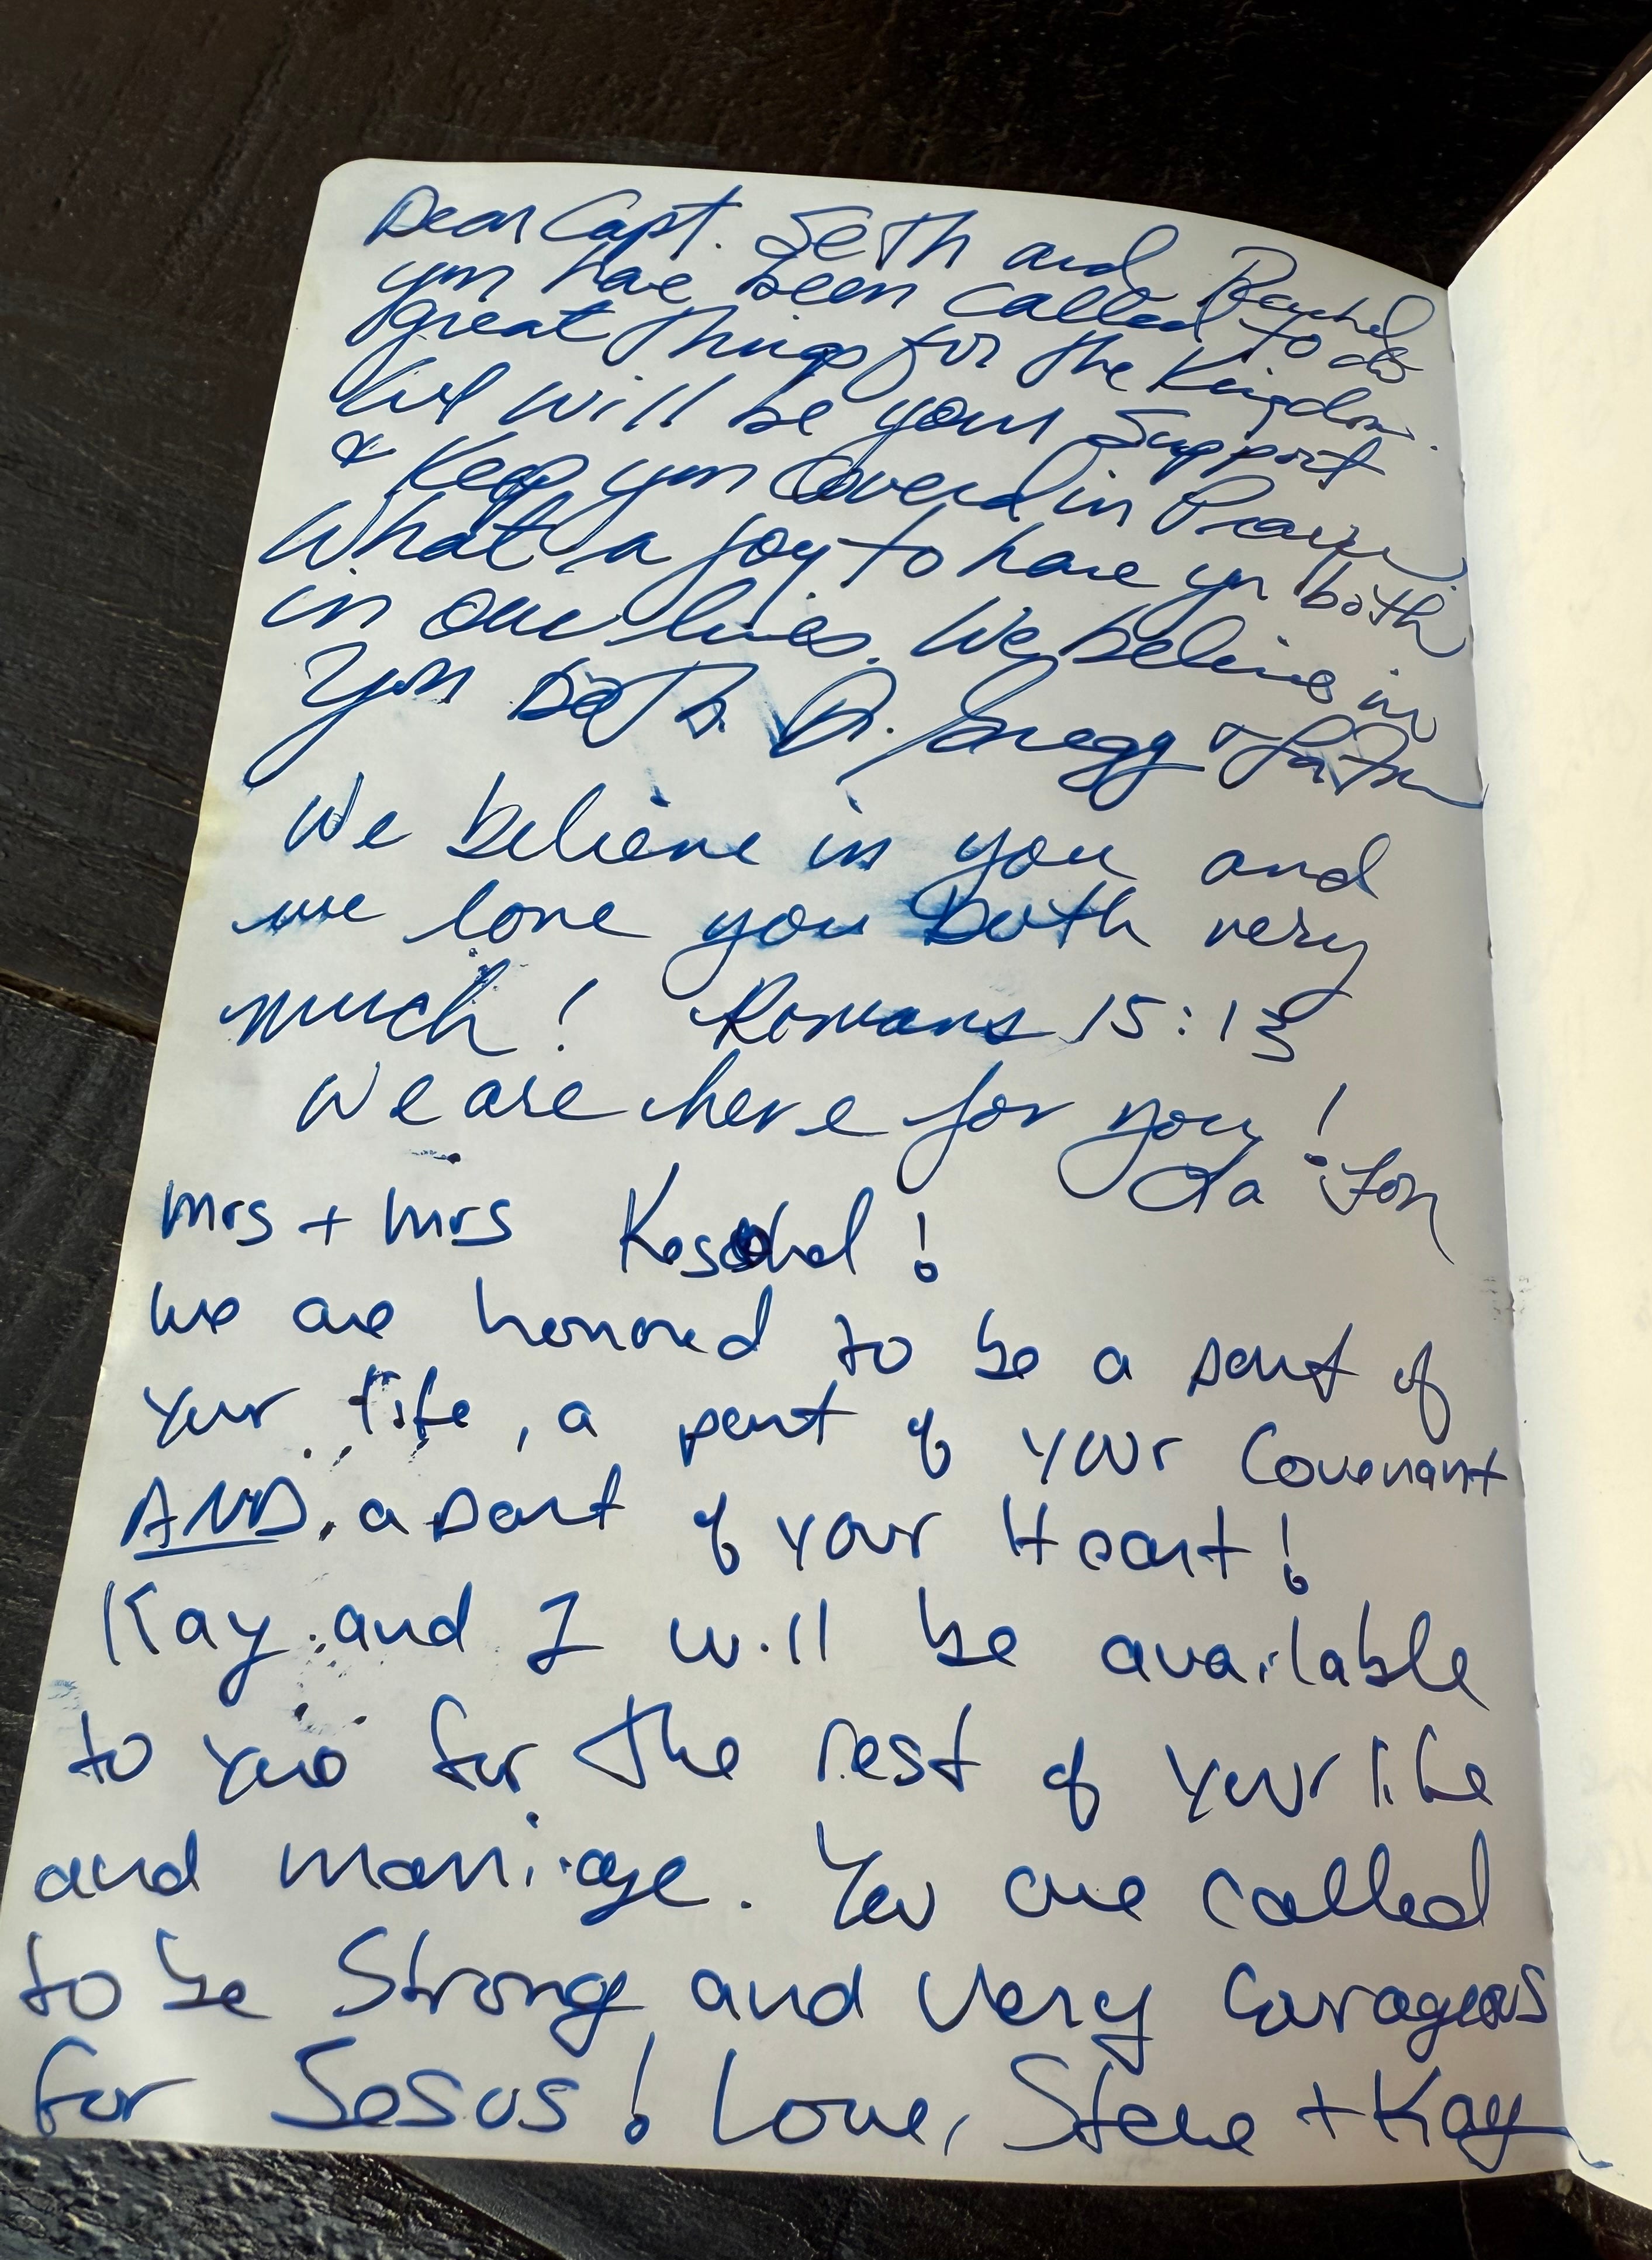 Dear Capt. Seth and Rachel
you have been called to do
great things for the Kingdom.
We will be your Support
& Keep you Covered in Prayer.
What a joy to have you both
in our lives. We believe in
you both. Dr. Gregg &
We believe in you and
we love you both very
much! Romans 15:13
We are here for you!
La Fon
Mrs + Mrs
we are honored to be a part of
your life, a part of your Covenant
AND, a part of your Heart!
Kay and I will be available
to you for the rest of your life
and marriage. You are called
to be Strong and very Courageous
for Jesus! Love, Steve + Kay